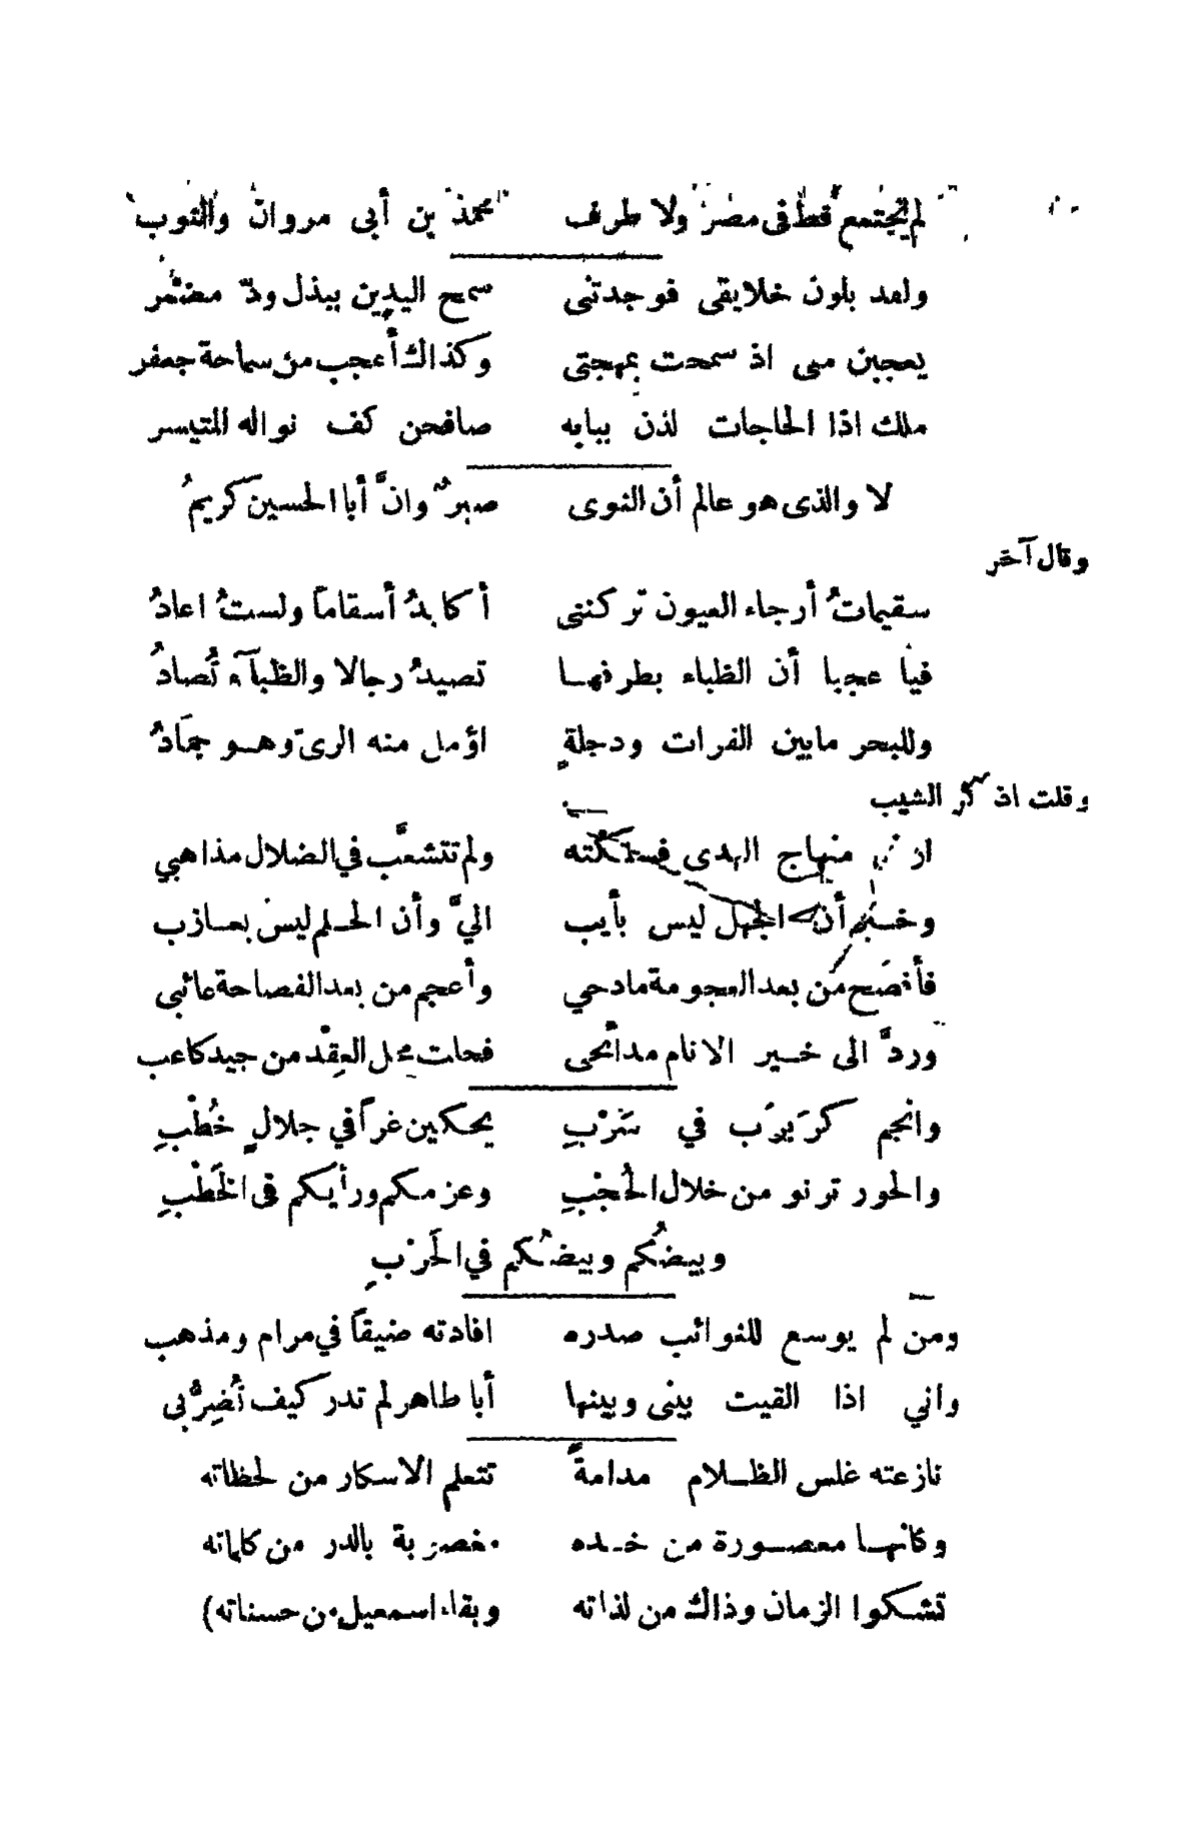 لم يجتمع قط فى مصر ولا طرف محمد بن أبى مروان والنوب
ولقد بلون خلايقى فوجدتنى سمح اليدين ببذل ودّ مضمر
يعجبن منى اذ سمحت بمهجتى وكذاك أعجب من سماحة جعفر
ملك اذا الحاجات لذن ببابه صافحن كف نواله المتيسر
لا والذى هو عالم أن النوى صبرٌ وانَّ أبا الحسين كريمُ
وقال آخر
سقيماتُ أرجاء العيون تركننى أكابدُ أسقاماً ولستُ اعادُ
فيا عجبا أن الظباء بطرفها تصيدُ رجالا والظبآء تُصادُ
وللبحر مابين الفرات ودجلةٍ اؤمل منه الرىّ وهو جمَادُ
وقلت اذ كثر الشيب
منهاج الهدى فسلكته ولم تتشعَّب في الضلال مذاهبي
أن الجهل ليس بأيب اليَّ وأن الحلم ليس بعازب
فأفصَح مَن بعد العجومة مادحي وأعجم من بعد الفصاحة عائبي
وردَّ الى خير الانام مدائحى فحلت محل العِقْد من جيد كاعب
وانجم كرَبرَب في سَرْبِ يحكين غراً في جلالٍ خُطْبِ
والحور ترنو من خلال الحُجْبِ وعزمكم ورأيكم فى الخَطْبِ
وبيضُكم وبيضُكم في الحَرْبِ
ومن لم يوسع للنوائب صدره افادته ضيقاً في مرام ومذهب
واني اذا القيت بينى وبينها أبا طاهر لم تدر كيف تُضِرُّ بى
نازعته غلس الظلام مدامةً تتعلم الاسكار من لحظاته
وكانها معصورة من خده بالدر من كلماته
تشكوا الزمان وذاك من لذاته وبقاء اسمعيل من حسناته)